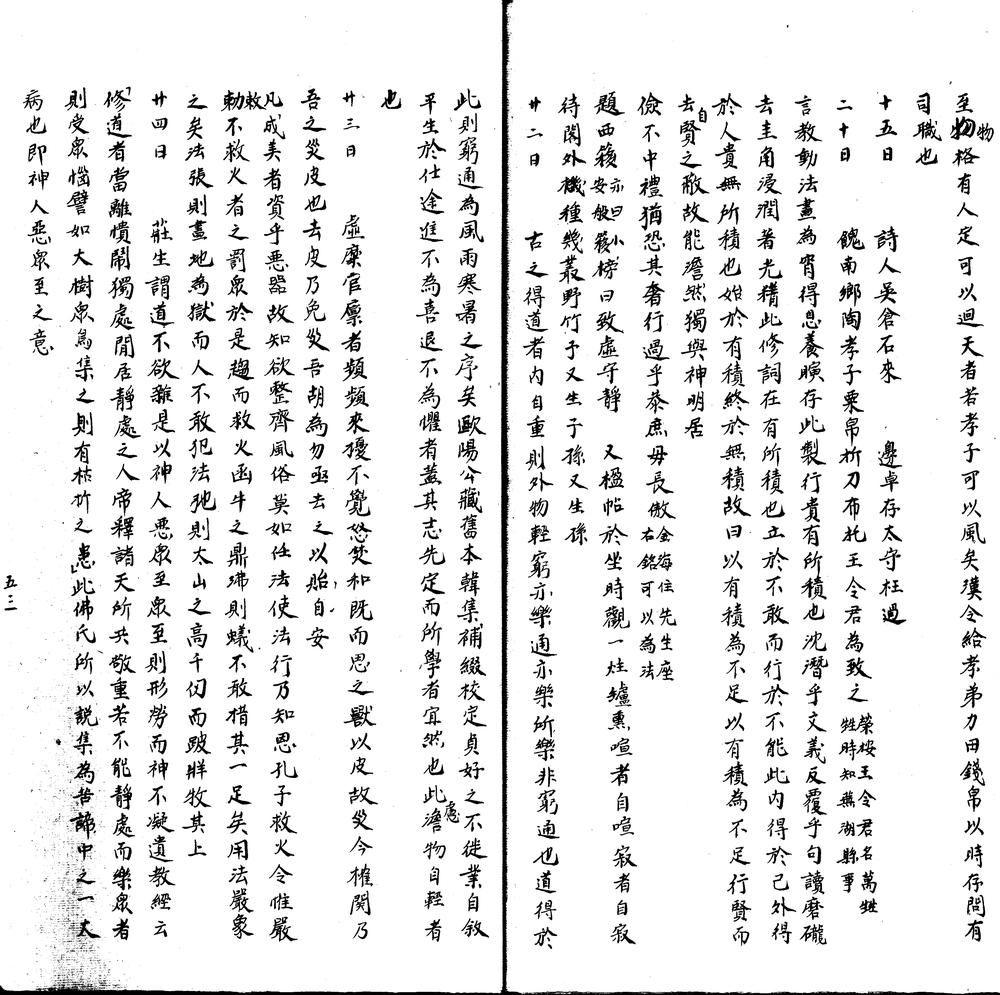 至物格有人定可以迴天者若孝子可以風矣漢令給孝弟力田錢帛以時存問有
物
司職也
十五日　詩人吳倉石來　邊卓存太守枉過
二十日　餽南鄉陶孝子粟帛折刀布托王令君為致之榮桉王令君名萬甡甡時知蕪湖縣事
言教動法晝為宵得息養瞚存此製行貴有所積也沈潛乎文義反覆乎句讀磨礲
去圭角浸潤著光精此修詞在有所積也立於不敢而行於不能此內得於己外得
於人貴無所積也始於有積終於無積故曰以有積為不足以有積為不足行賢而
去自賢之蔽故能澹然獨與神明居
儉不中禮猶恐其奢行過乎恭庶毋長傲金海住先生座右銘可以為法
題西簃亦曰小安般簃榜曰致虛守靜　又楹帖於坐時觀一炷鑪熏喧者自喧寂者自寂
待閑外機種幾叢野竹予又生子孫又生孫
廿二日　古之得道者內自重則外物輕窮亦樂通亦樂所樂非窮通也道得於
此則窮通為風雨寒暑之序矣歐陽公藏舊本韓集補綴校定貞好之不徙業自敘
平生於仕途進不為喜退不為懼者蓋其志先定而所學者宜然也此處澹物自輕者
也
廿三日　虛糜官廩者頻頻來擾不覺怒焚和既而思之獸以皮故災今榷關乃
吾之災皮也去皮乃免災吾胡為勿亟去之以貽自安
凡成美者資乎惡器故知欲整齊風俗莫如任法使法行乃知恩孔子救火令惟嚴
勅救不救火者之罰眾於是趨而救火函牛之鼎沸則蟻不敢措其一足矣用法嚴象
之矣法張則畫地為獄而人不敢犯法弛則太山之高千仞而跛牂牧其上
廿四日　莊生謂道不欲雜是以神人惡眾至眾至則形勞而神不凝遺教經云
修道者當離憒鬧獨處閒居靜處之人帝釋諸天所共敬重若不能靜處而樂眾者
則受眾惱譬如大樹眾鳥集之則有枯折之患此佛氏所以說集為苦諦中之一大
病也即神人惡眾至之意
五三